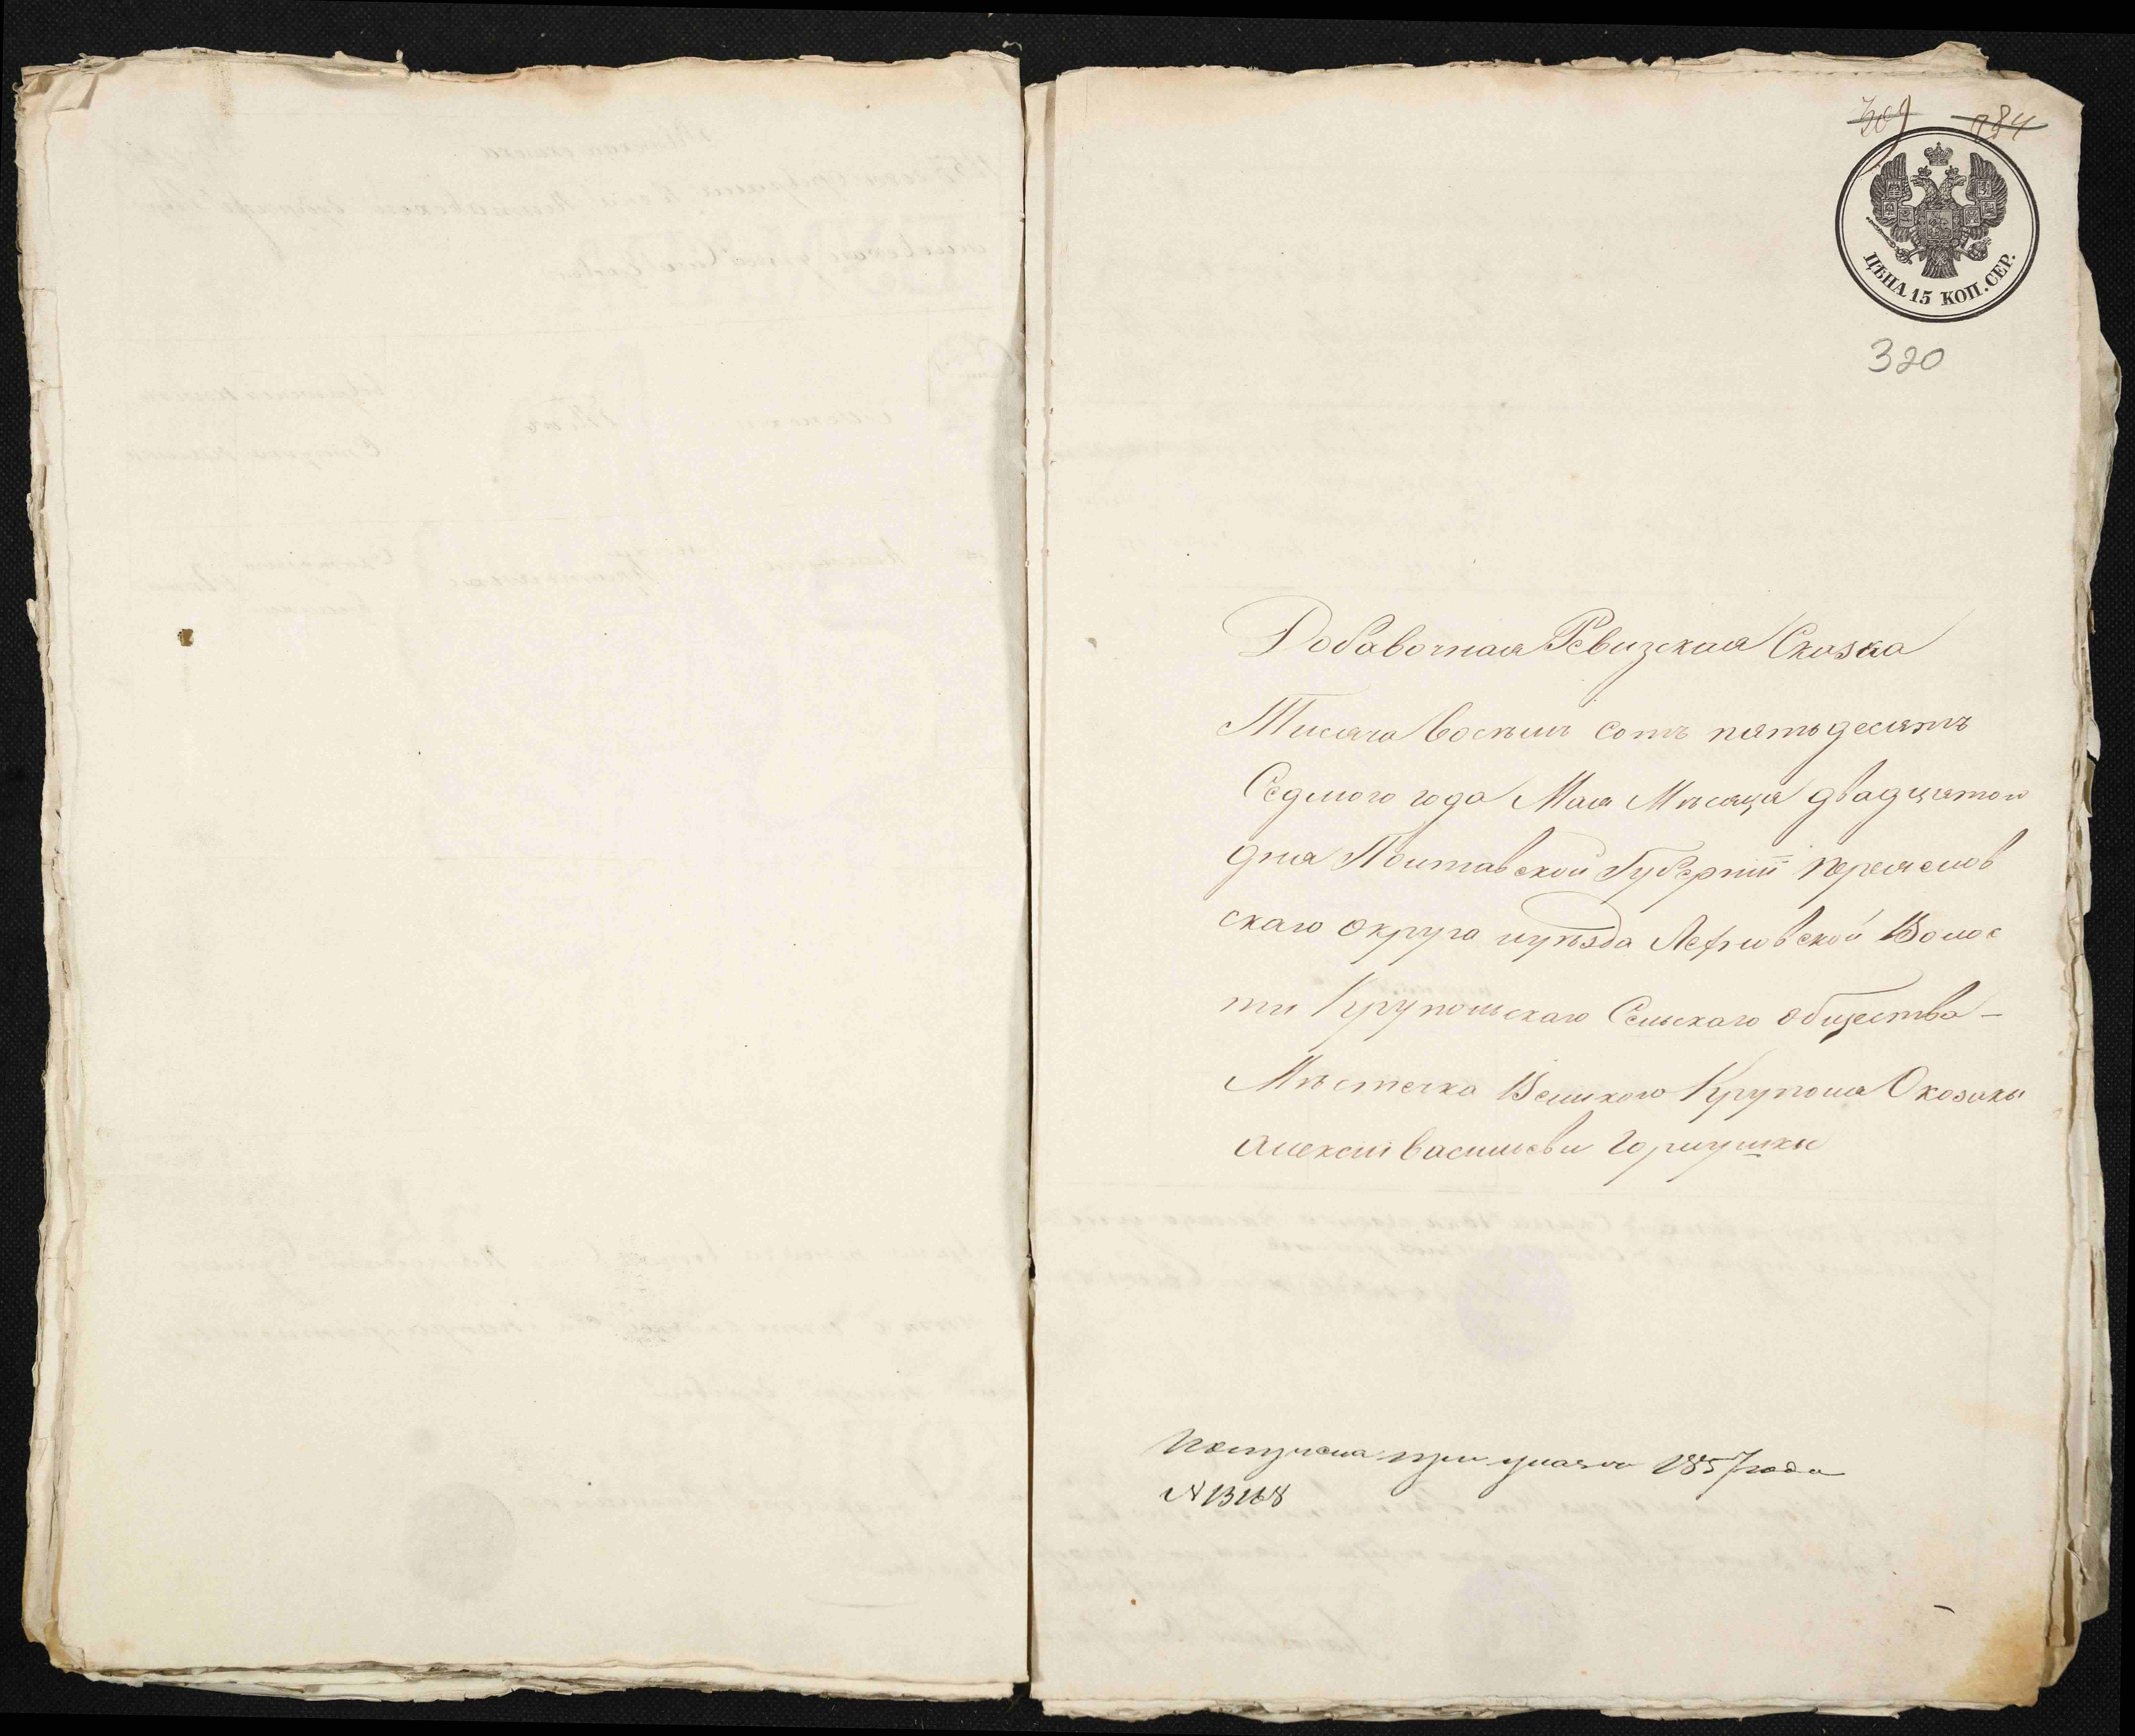 309 284
ЦѢНА 15 КОП. СЕР.
320
Добавочная Ревизская Сказка
Тисяча восѣмъ сотъ пятьдесятъ
Седмого года Мая Мѣсяца двадцятого
дня Полтавской Губернии переяслов
скаго округа иуѣзда Лехновской Волос
ти Крупольскаго Сельскаго общества –
Мѣстечка Великого Круполя Окозакы
Алексѣи васильеви Горкушки
Получена при указѣ 1857 года
№ 13168